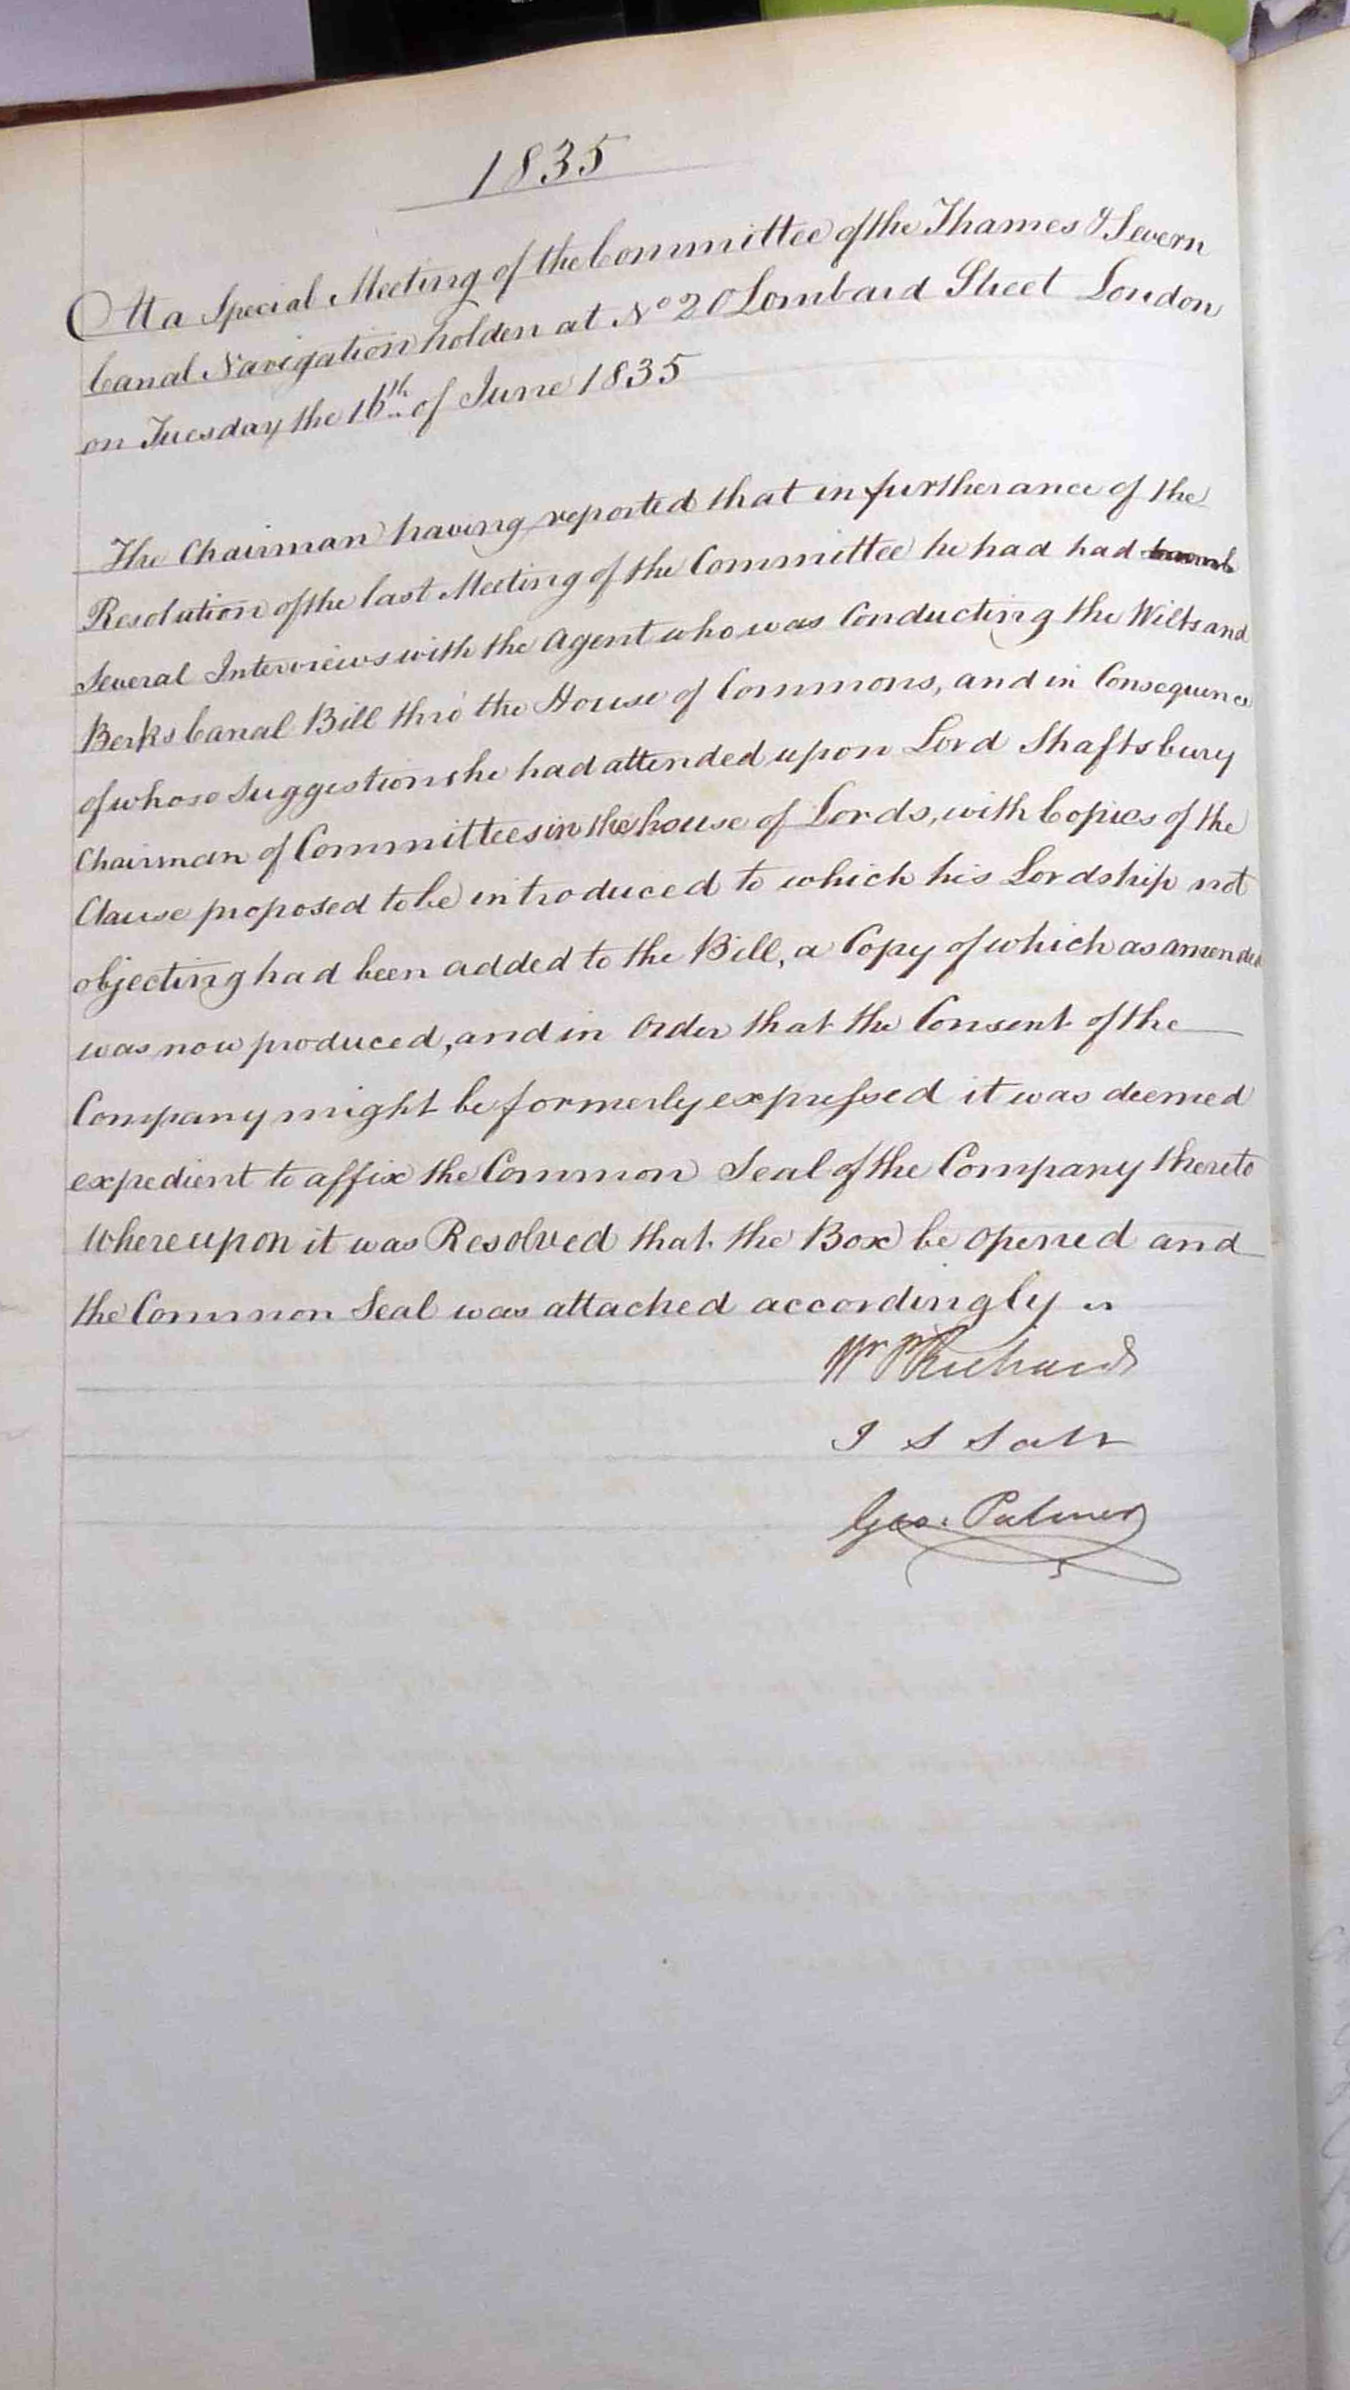 1835
At a Special Meeting of the Committee of the Thames & Severn
Canal Navigation holden at No 20 Lombard Street London
on Tuesday the 16th of June 1835
The Chairman having reported that in furtherance of the
Resolution of the last Meeting of the Committee he had had
Several Interviews with the Agent who was Conducting the Wilts and
Berks Canal Bill thro' the House of Commons, and in Consequence
of whose Suggestions he had attended upon Lord Shaftsbury
Chairman of Committees in the house of Lords, with Copies of the
Clause proposed to be introduced to which his Lordship not
objecting had been added to the Bill, a Copy of which as amended
was now produced, and in Order that the Consent of the
Company might be formerly expressed it was deemed
expedient to affix the Common Seal of the Company thereto
Whereupon it was Resolved that the Box be opened and
the Common Seal was attached accordingly
Wm P Richards
J S Salt
Geo. Palmer